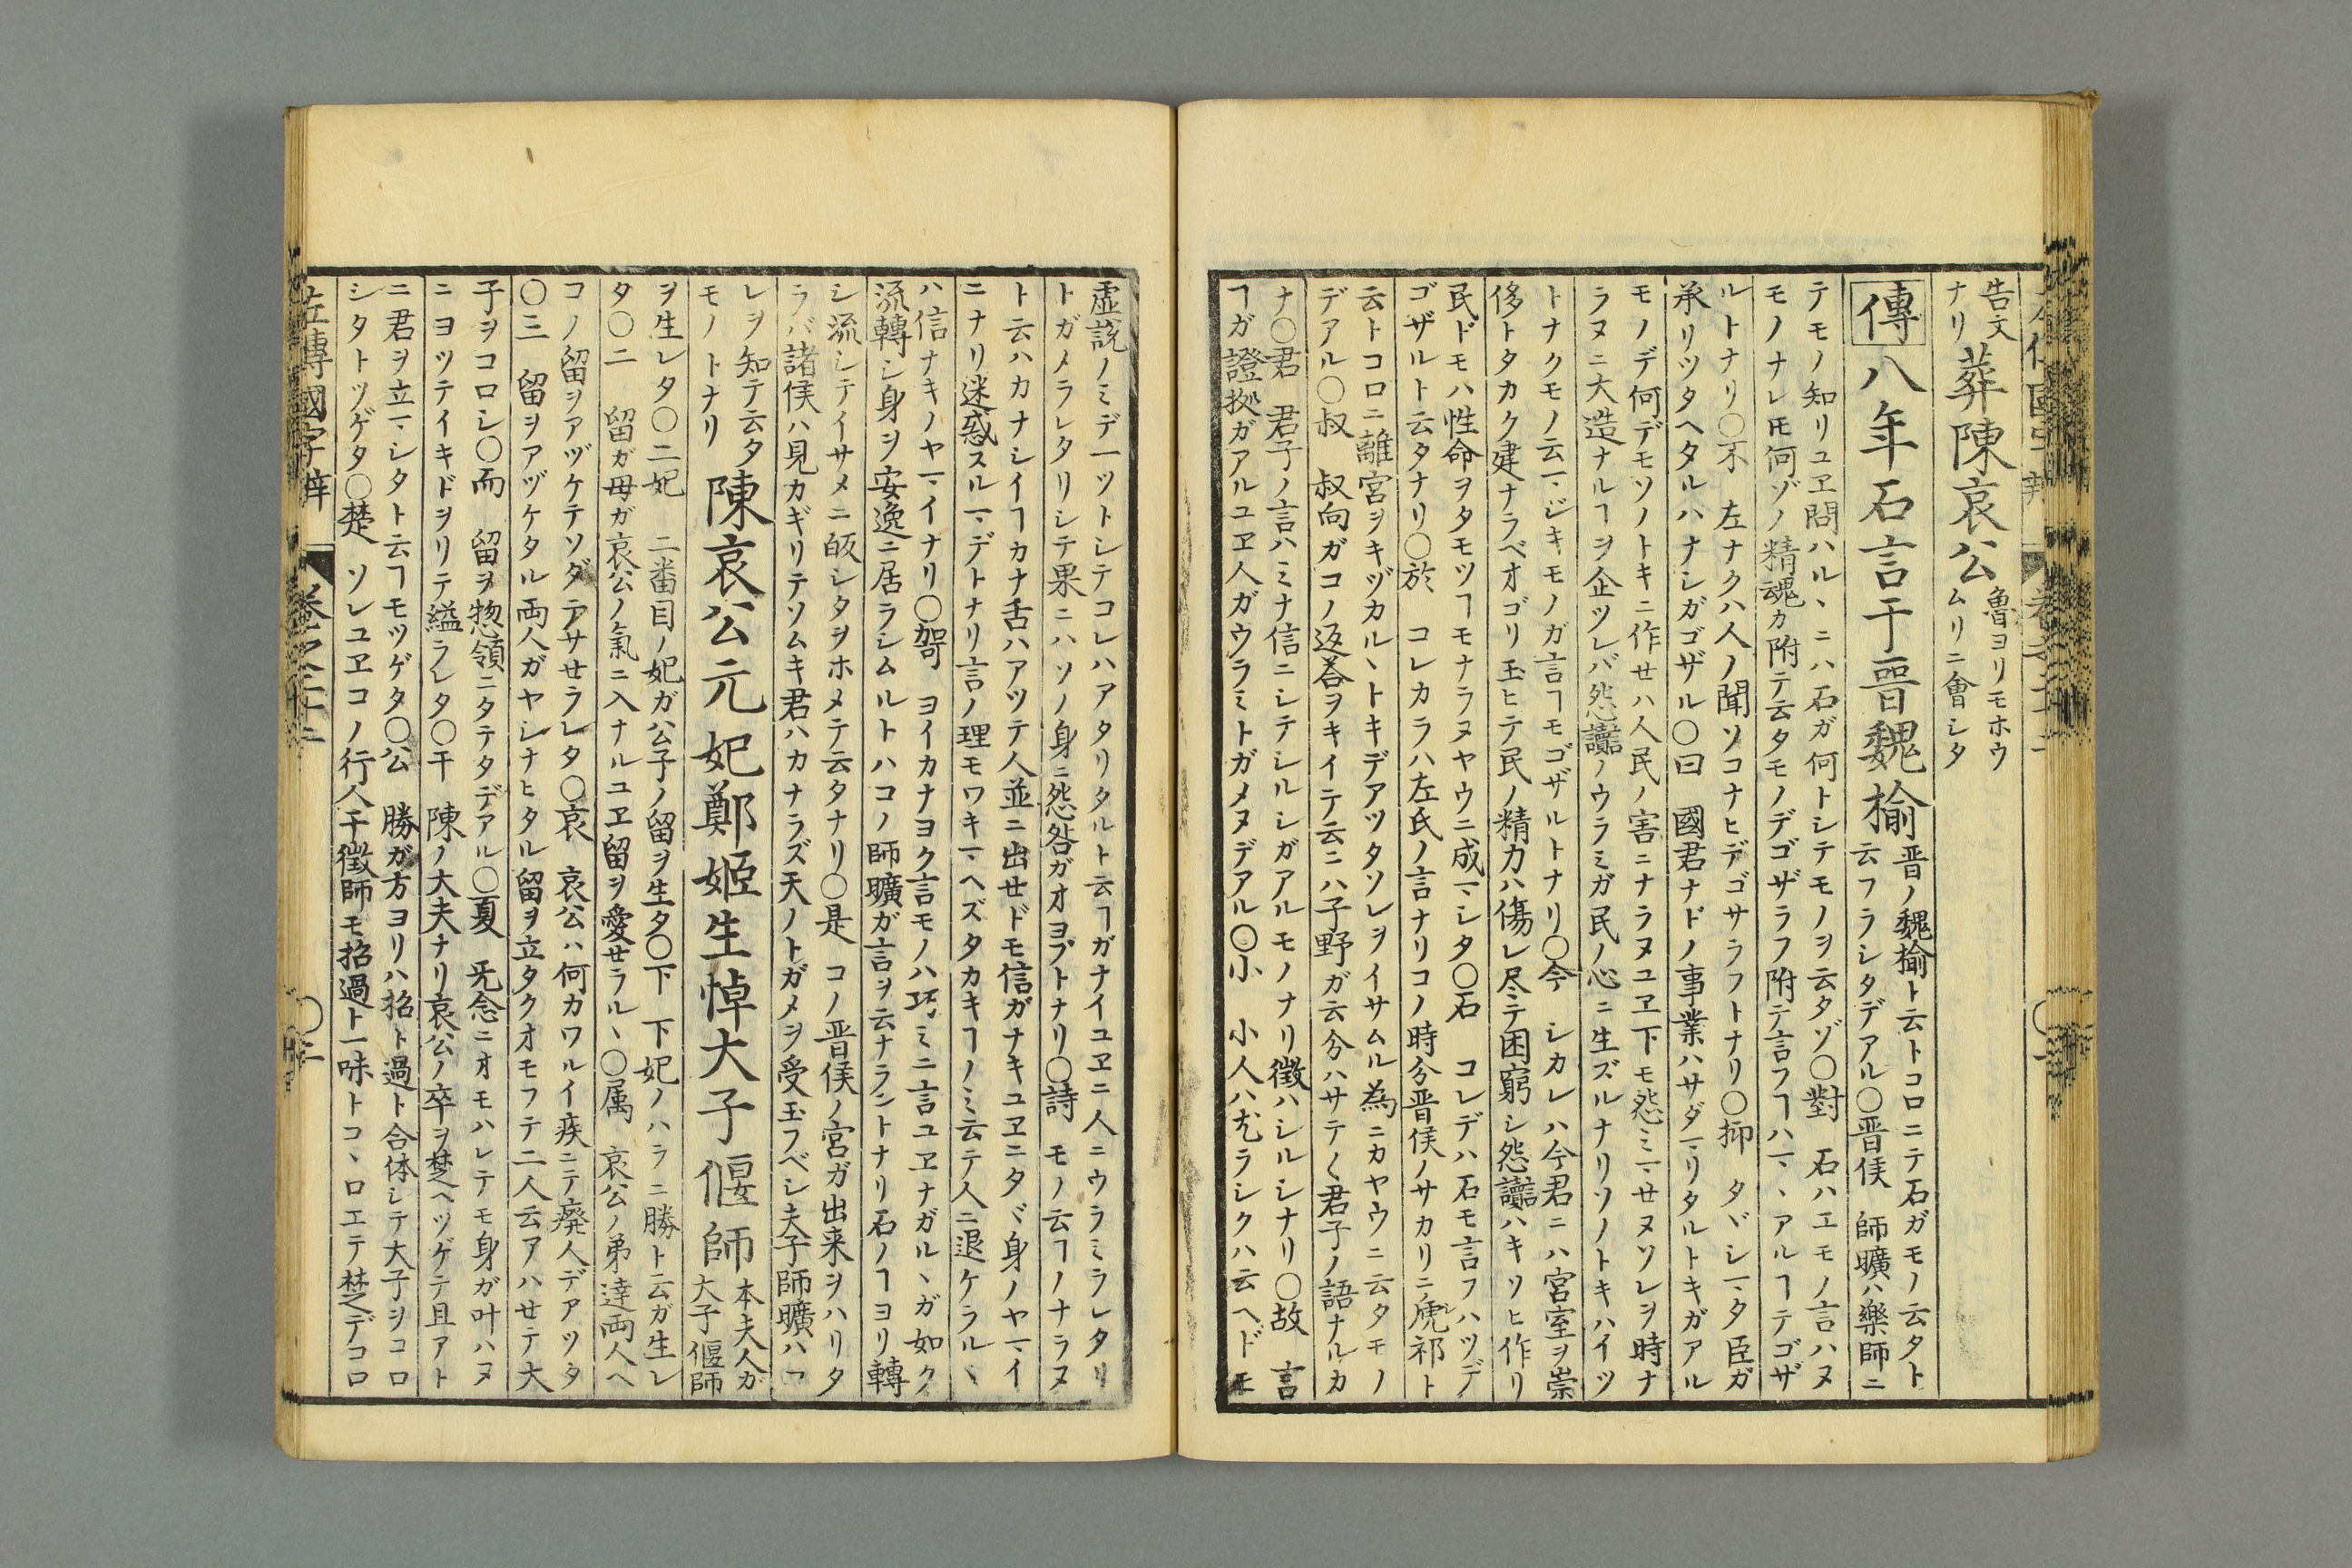 告文
ナリ
葬陳哀公
魯ヨリモホウ
ムリニ會シタ
傳八年石言于晉魏榆
晋ノ魏榆ト云トコロニテ石ガモノ云タト
云フラシタデアル〇晋侯　師曠ハ樂師ニ
テモノ知リユヱ問ハル丶ニハ石ガ何トシテモノヲ云タゾ〇對　石ハエモノ言ハヌ
モノナレ𪜈何ゾノ精魂カ附テ云タモノデゴザラフ附テ言フヿハマ丶アルヿテゴザ
ルトナリ〇不　左ナクハ人ノ聞ソコナヒデゴサラフトナリ〇抑　タヾシマタ臣ガ
承リツタヘタルハナシガゴザル〇曰　國君ナドノ事業ハサダマリタルトキガアル
モノデ何デモソノトキニ作セハ人民ノ害ニナラヌユヱ下モ怨ミマセヌソレヲ時ナ
ラヌニ大造ナルヿヲ企ツレバ怨讟ノウラミガ民ノ心ニ生ズルナリソノトキハイツ
トナクモノ云マジキモノガ言ヿモゴザルトナリ〇今　シカレハ今君ニハ宮室ヲ崇
侈トタカク建ナラベオゴリ玉ヒテ民ノ精力ハ傷レ尽テ困窮シ怨讟ハキソヒ作リ
民ドモハ性命ヲタモツヿモナラヌヤウニ成マシタ〇石　コレデハ石モ言フハツデ
ゴザルト云タナリ〇於　コレカラハ左氏ノ言ナリコノ時分晋侯ノサカリニ虒祁ト
云トコロニ離宮ヲキヅカル丶トキデアツタソレヲイサムル為ニカヤウニ云タモノ
デアル〇叔　叔向ガコノ返荅ヲキイテ云ニハ子野ガ云分ハサテ〱君子ノ語ナルカ
ナ〇君　君子ノ言ハミナ信ニシテシルシガアルモノナリ徴ハシルシナリ〇故　言
ヿガ證拠ガアルユヱ人ガウラミトガメヌデアル〇小　小人ハ尤ラシクハ云ヘドモ
虚説ノミデ一ツトシテコレハアタリタルト云ヿガナイユヱニ人ニウラミラレタリ
トガメラレタリシテ果ニハソノ身ニ怨咎ガオヨブトナリ〇詩　モノ云ヿノナラヌ
ト云ハカナシイヿカナ舌ハアツテ人並ニ出セドモ信ガナキユヱニタヾ身ノヤマイ
ニナリ迷惑スルマデトナリ言ノ理モワキマヘズタカキヿノミ云テ人ニ退ケラル丶
ハ信ナキノヤマイナリ〇哿　ヨイカナヨク言モノハ巧ミニ言ユヱナガル丶ガ如ク
流轉シ身ヲ安逸ニ居ラシムルトハコノ師曠ガ言ヲ云ナラントナリ石ノヿヨリ轉
シ流シテイサメニ皈シタヲホメテ云タナリ〇是　コノ晋侯ノ宮ガ出来ヲハリタ
ラバ諸侯ハ見カギリテソムキ君ハカナラズ天ノトガメヲ受玉フベシ夫子師曠ハヿ
レヲ知テ云タ
モノトナリ
陳哀公元妃鄭姬生悼大子偃師
本夫人ガ
大子偃師
ヲ生レタ〇二妃　二番目ノ妃ガ公子ノ留ヲ生タ〇下　下妃ノハラニ勝ト云ガ生レ
タ〇二　留ガ母ガ哀公ノ氣ニ入ナルユヱ留ヲ愛セラル丶〇属　哀公ノ弟達両人ヘ
コノ留ヲアヅケテソダテサセラレタ〇哀　哀公ハ何カワルイ疾ニテ癈人デアツタ
〇三　留ヲアヅケタル両人ガヤシナヒタル留ヲ立タクオモフテ二人云アハセテ大
子ヲコロシ〇而　留ヲ惣領ニタテタデアル〇夏　旡念ニオモハレテモ身ガ叶ハヌ
ニヨツテイキドヲリテ縊ラレタ〇干　陳ノ大夫ナリ哀公ノ卒ヲ楚ヘツゲテ且アト
ニ君ヲ立マシタト云ヿモツゲタ〇公　勝ガ方ヨリハ招ト過ト合体シテ大子ヲコロ
シタトツゲタ〇楚　ソレユヱコノ行人干徴師モ招過ト一味トコ丶ロエテ楚デコロ
左傳國字辯　巻之三十二　〇二